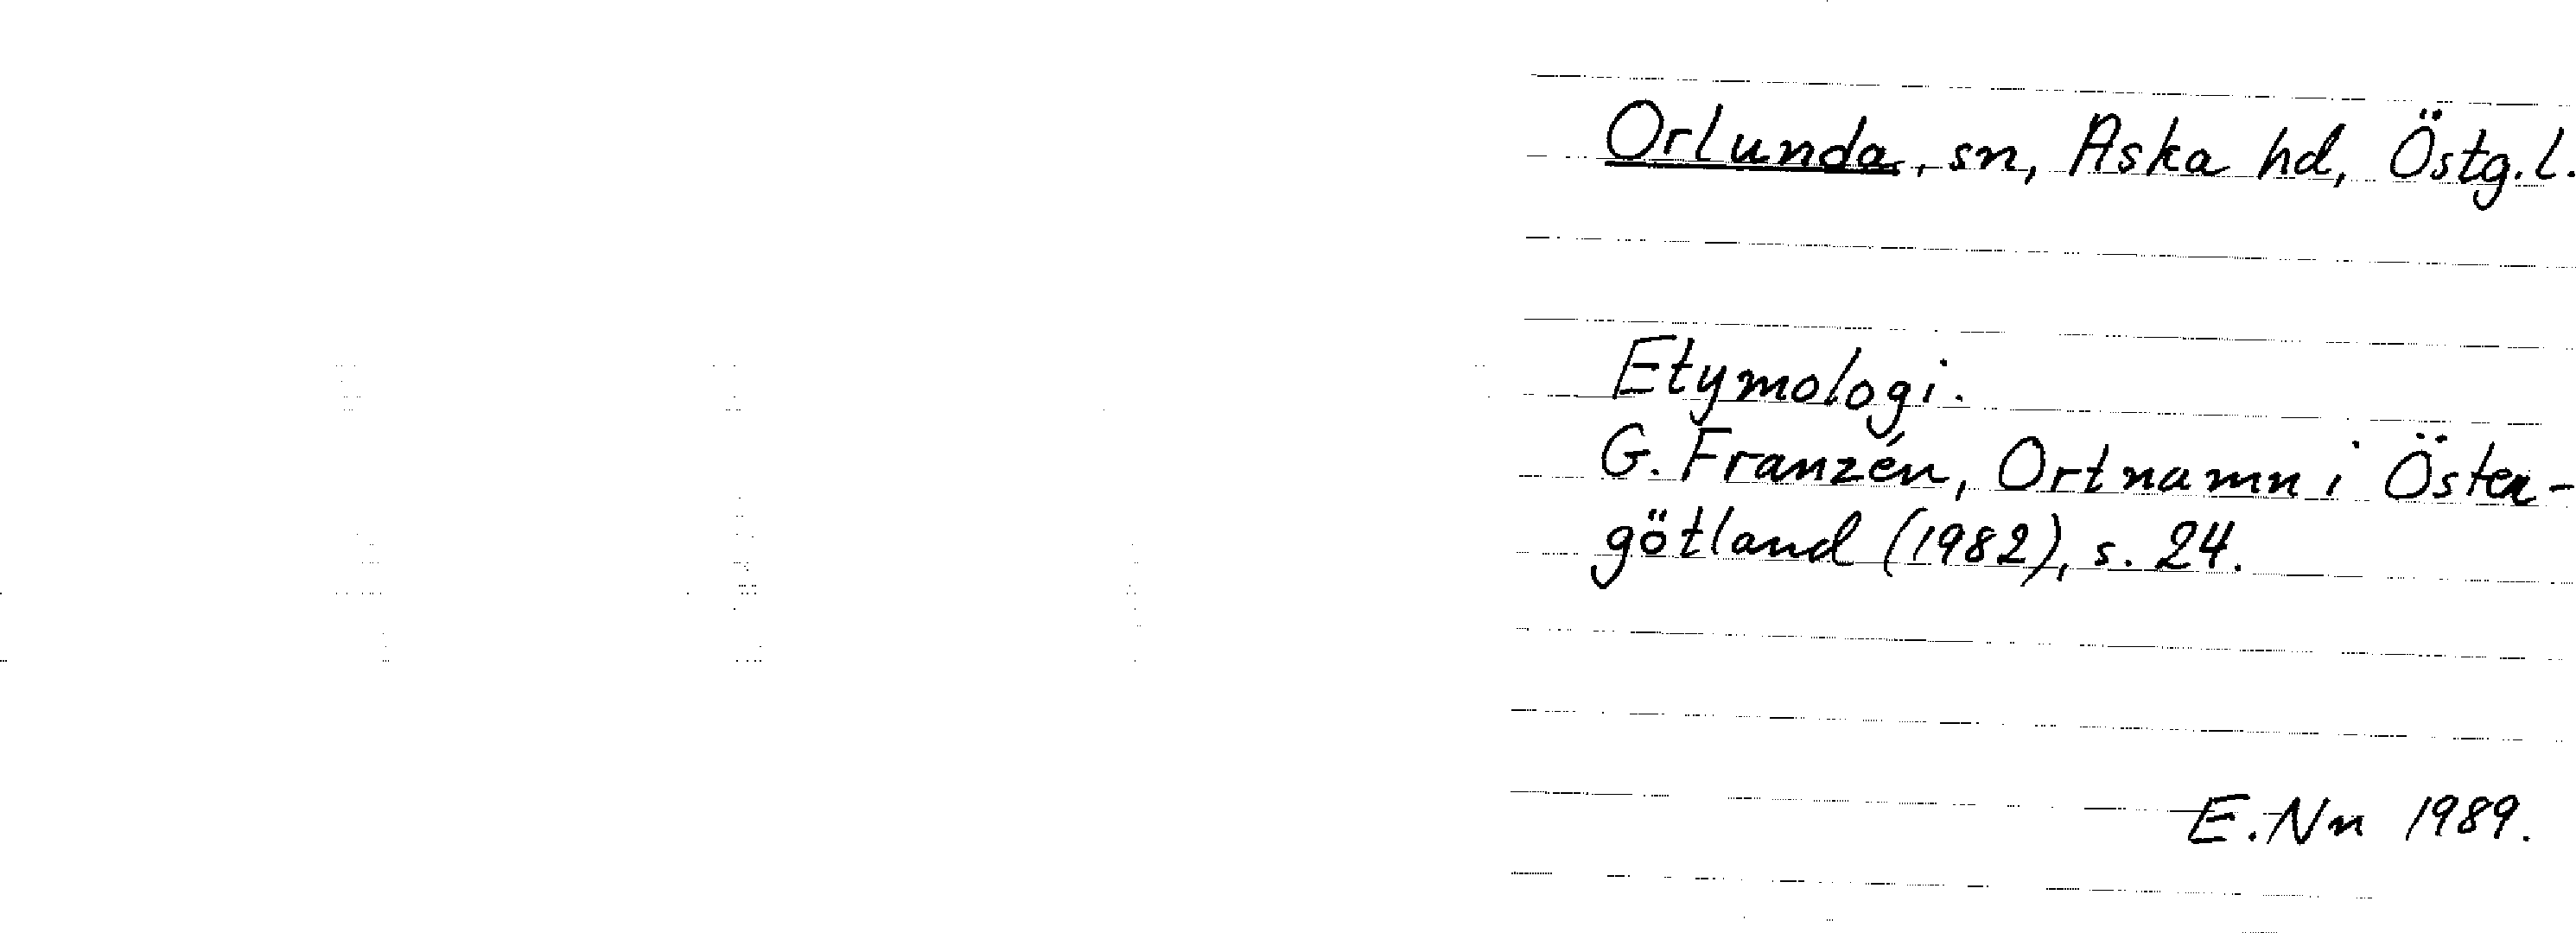 Orlunda, sn, Aska hd, Östg.l.
Etymologi.
G. Franzén, Ortnamn i Öster-
götland (1982), s. 24.
E. Nn 1989.